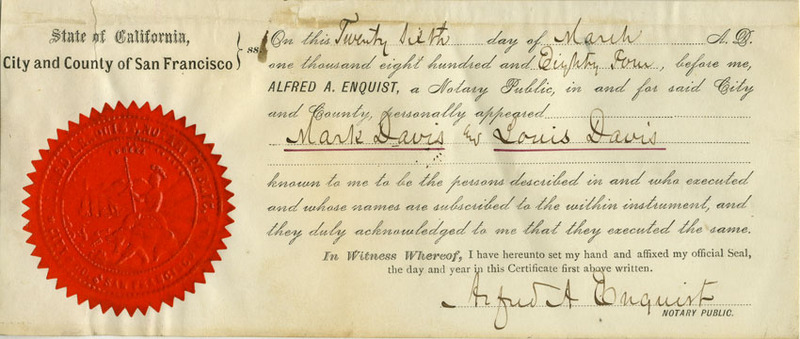 State of California,
City and County of San Francisco
ss.
On this Twenty Sixth day of March A. D.
one thousand eight hundred and Eighty Four, before me,
ALFRED A. ENQUIST, a Notary Public, in and for said City
and County, personally appeared
Mark Davis & Louis Davis
known to me to be the persons described in and who executed
and whose names are subscribed to the within instrument, and
they duly acknowledged to me that they executed the same.
In Witness Whereof, I have hereunto set my hand and affixed my official Seal,
the day and year in this Certificate first above written.
Alfred A Enquist
NOTARY PUBLIC.